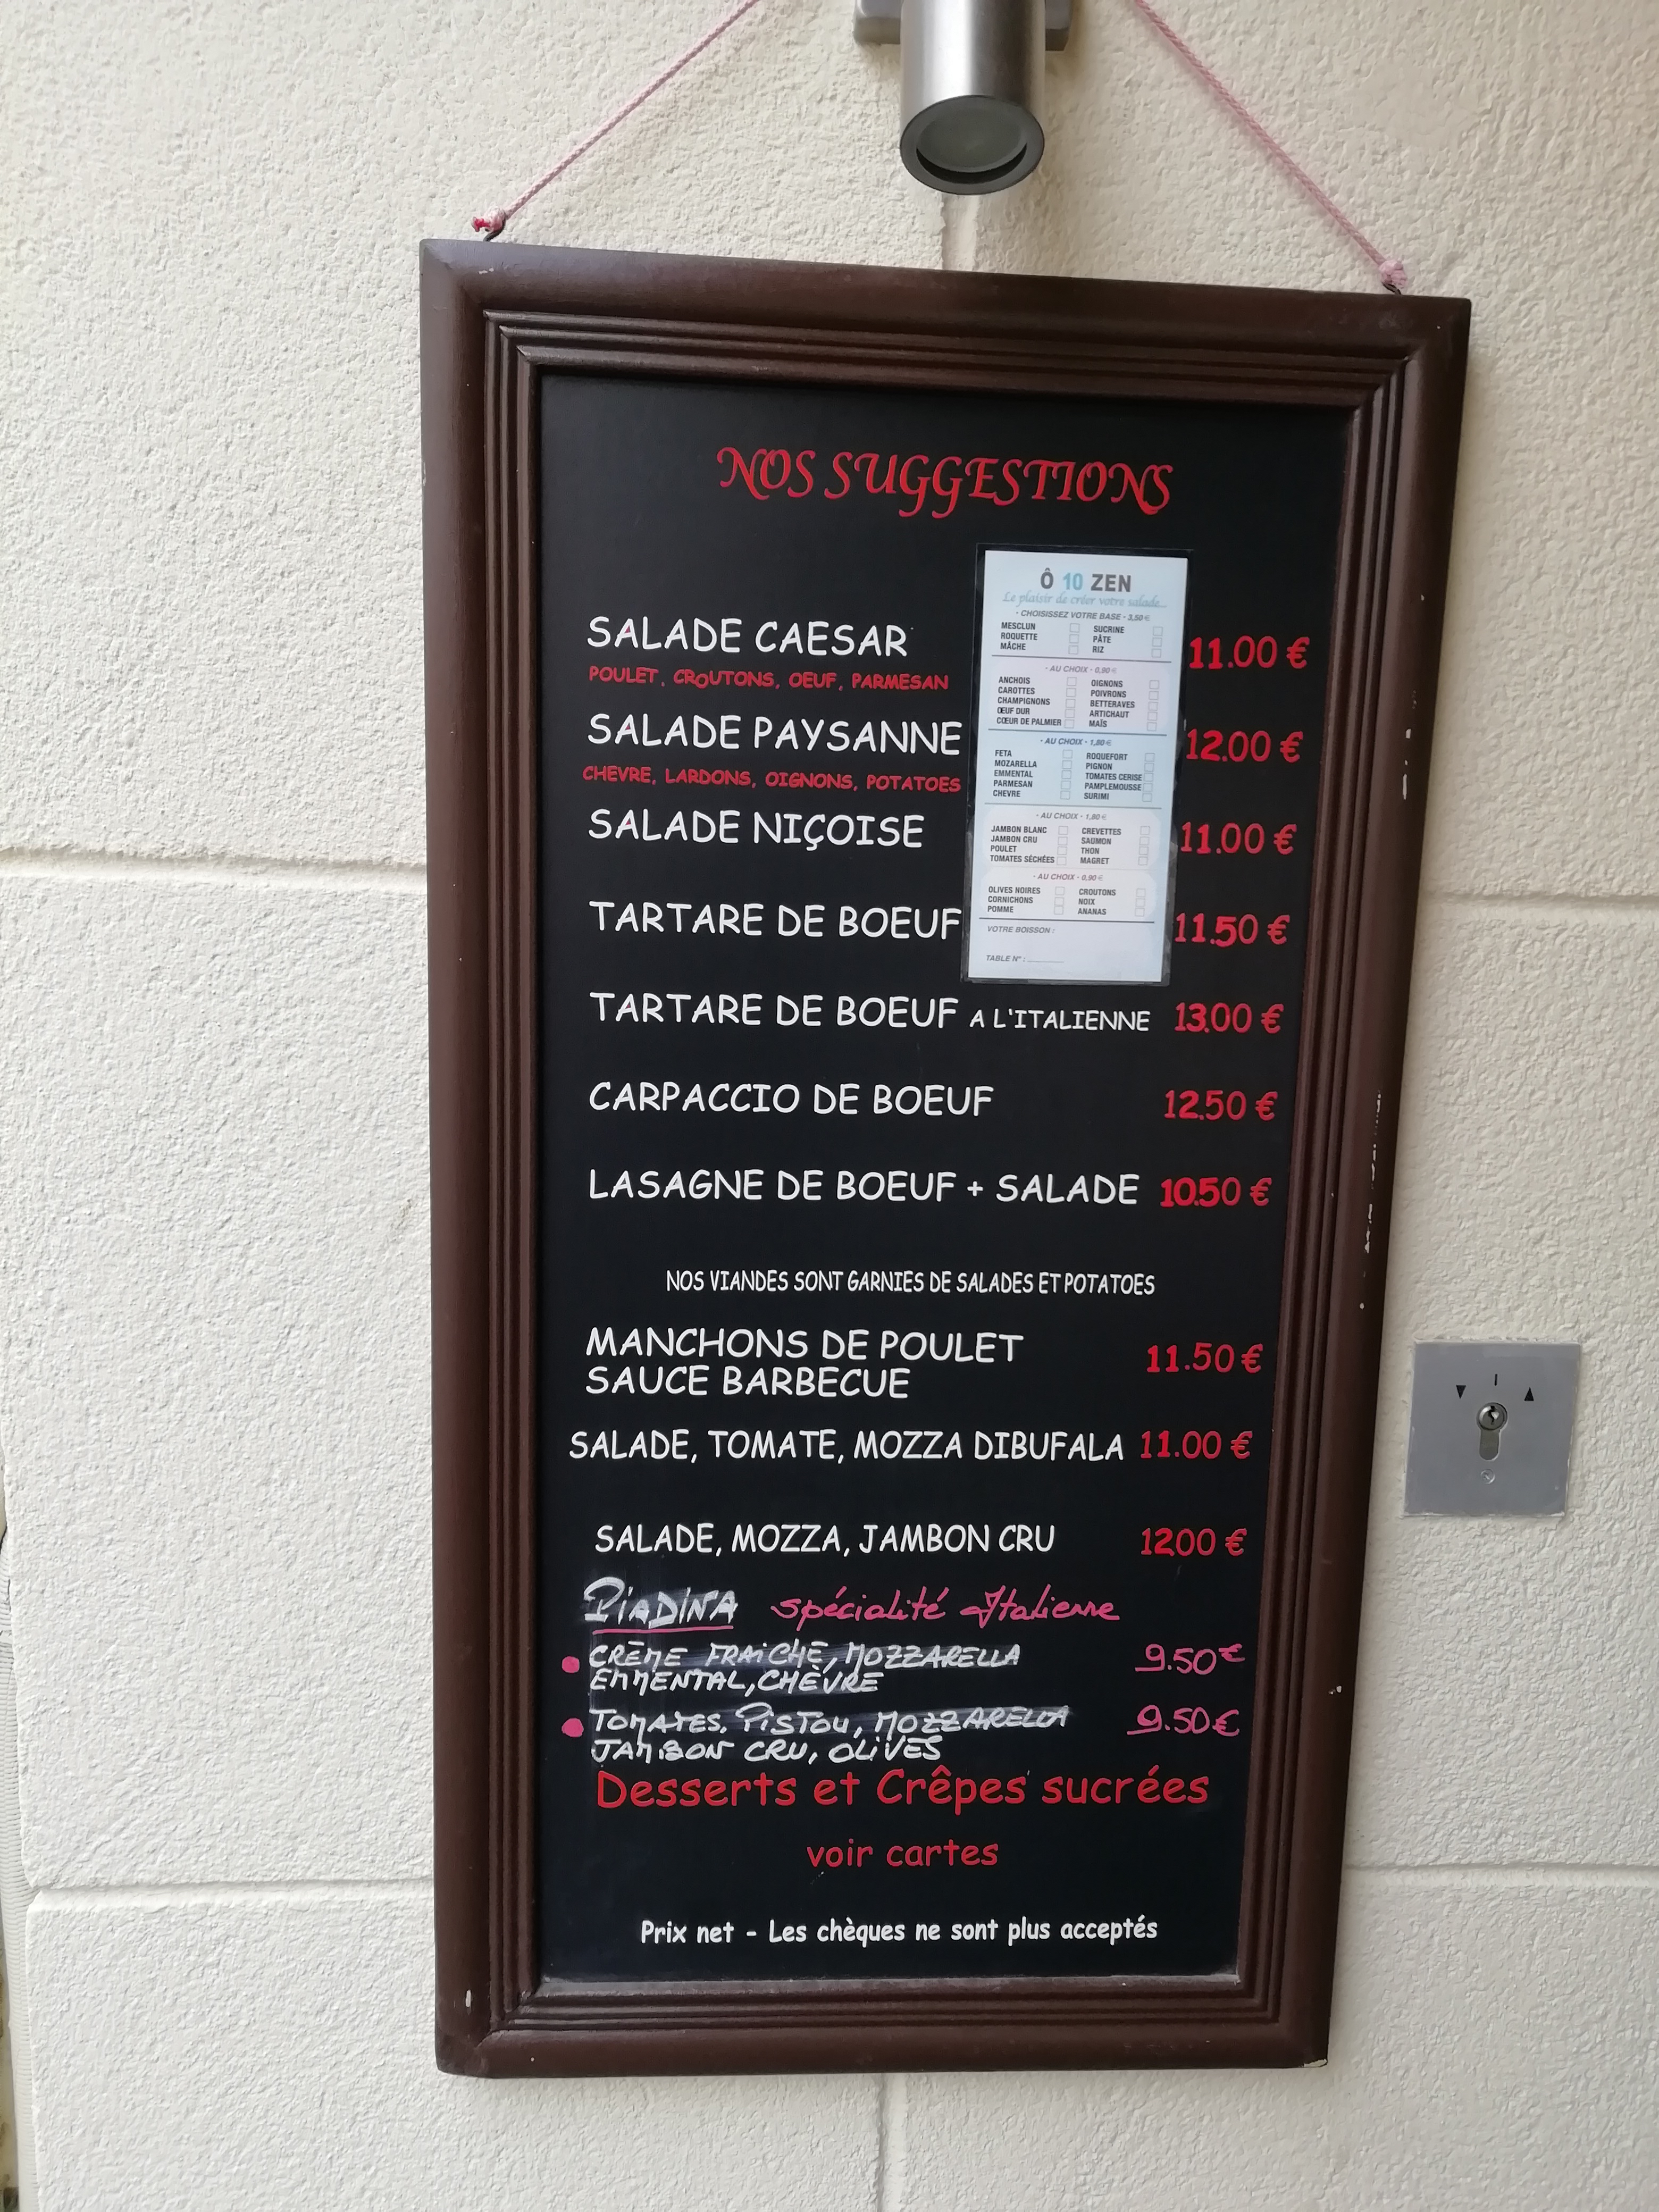 NOS SUGGESTIONS
Ô 10 ZEN
Le plaisir de créer votre salade...
- CHOISISSEZ VOTRE BASE - 3,50 €
MESCLUN SUCRINE
ROQUETTE PÂTE
MÂCHE RIZ
- AU CHOIX - 0,90 €
ANCHOIS OIGNONS
CAROTTES POIVRONS
CHAMPIGNONS BETTERAVES
ŒUF DUR ARTICHAUT
CŒUR DE PALMIER MAÏS
- AU CHOIX - 1,80 €
FETA ROQUEFORT
MOZARELLA PIGNON
EMMENTAL TOMATES CERISE
PARMESAN PAMPLEMOUSSE
CHEVRE SURIMI
- AU CHOIX - 1,80 €
JAMBON BLANC CREVETTES
JAMBON CRU SAUMON
POULET THON
TOMATES SÉCHÉES MAGRET
- AU CHOIX - 0,90 €
OLIVES NOIRES CROUTONS
CORNICHONS NOIX
POMME ANANAS
VOTRE BOISSON :
TABLE N° : ...............
SALADE CAESAR 11.00 €
POULET, CROUTONS, OEUF, PARMESAN
SALADE PAYSANNE 12.00 €
CHEVRE, LARDONS, OIGNONS, POTATOES
SALADE NIÇOISE 11.00 €
TARTARE DE BOEUF 11.50 €
TARTARE DE BOEUF A L'ITALIENNE 13.00 €
CARPACCIO DE BOEUF 12.50 €
LASAGNE DE BOEUF + SALADE 10.50 €
NOS VIANDES SONT GARNIES DE SALADES ET POTATOES
MANCHONS DE POULET 11.50 €
SAUCE BARBECUE
SALADE, TOMATE, MOZZA DIBUFALA 11.00 €
SALADE, MOZZA, JAMBON CRU 12.00 €
PIADINA spécialité Italienne
CRÈME FRAICHE, MOZZARELLA 9.50 €
EMMENTAL, CHÈVRE
TOMATES, PISTOU, MOZZARELLA 9.50 €
JAMBON CRU, OLIVES
Desserts et Crêpes sucrées
voir cartes
Prix net - Les chèques ne sont plus acceptés